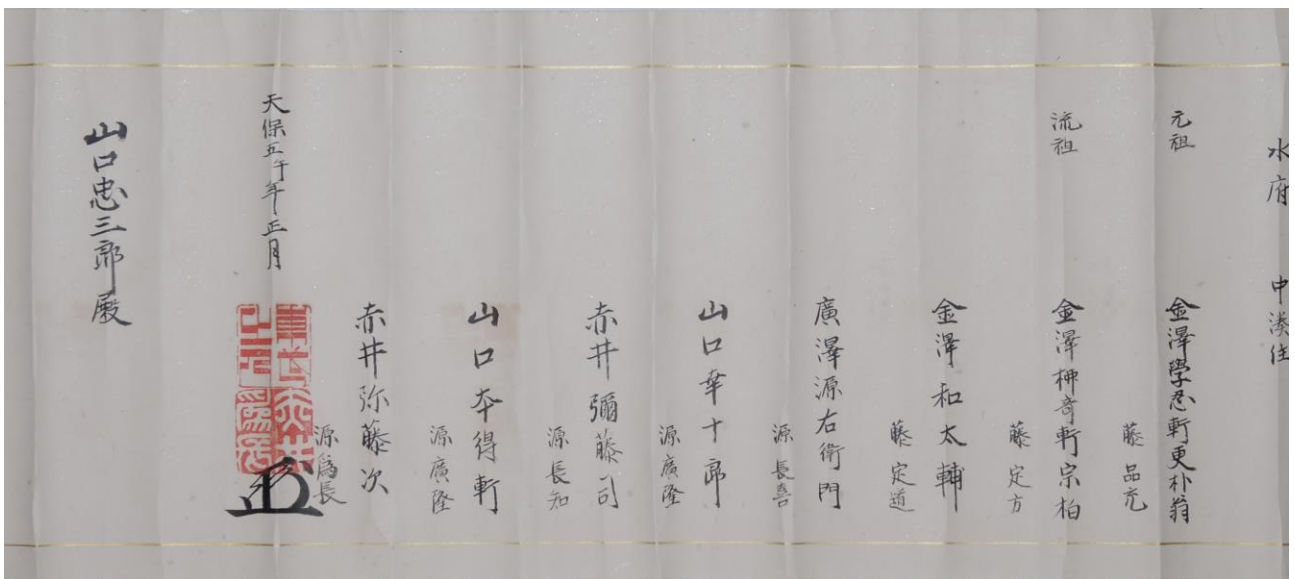 水府 中湊住
元祖 金澤學忍軒更朴翁
藤品充
流祖 金澤栁奇軒宗柏
藤定方
金澤和太輔
藤定道
廣澤源右衛門
源長喜
山口幸十郎
源廣隆
赤井彌藤司
源長知
山口本得軒
源廣隆
赤井弥藤次
源為長
天保五午年正月
山口忠三郎殿